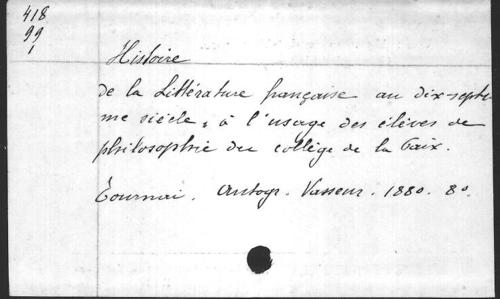 418
99
1
Histoire
de la Littérature française au dix-septi
me siècle, à l'usage des élèves de
philosophie du collège de la Paix.
Tournai. Autogr. Vasseur. 1880. 8o.